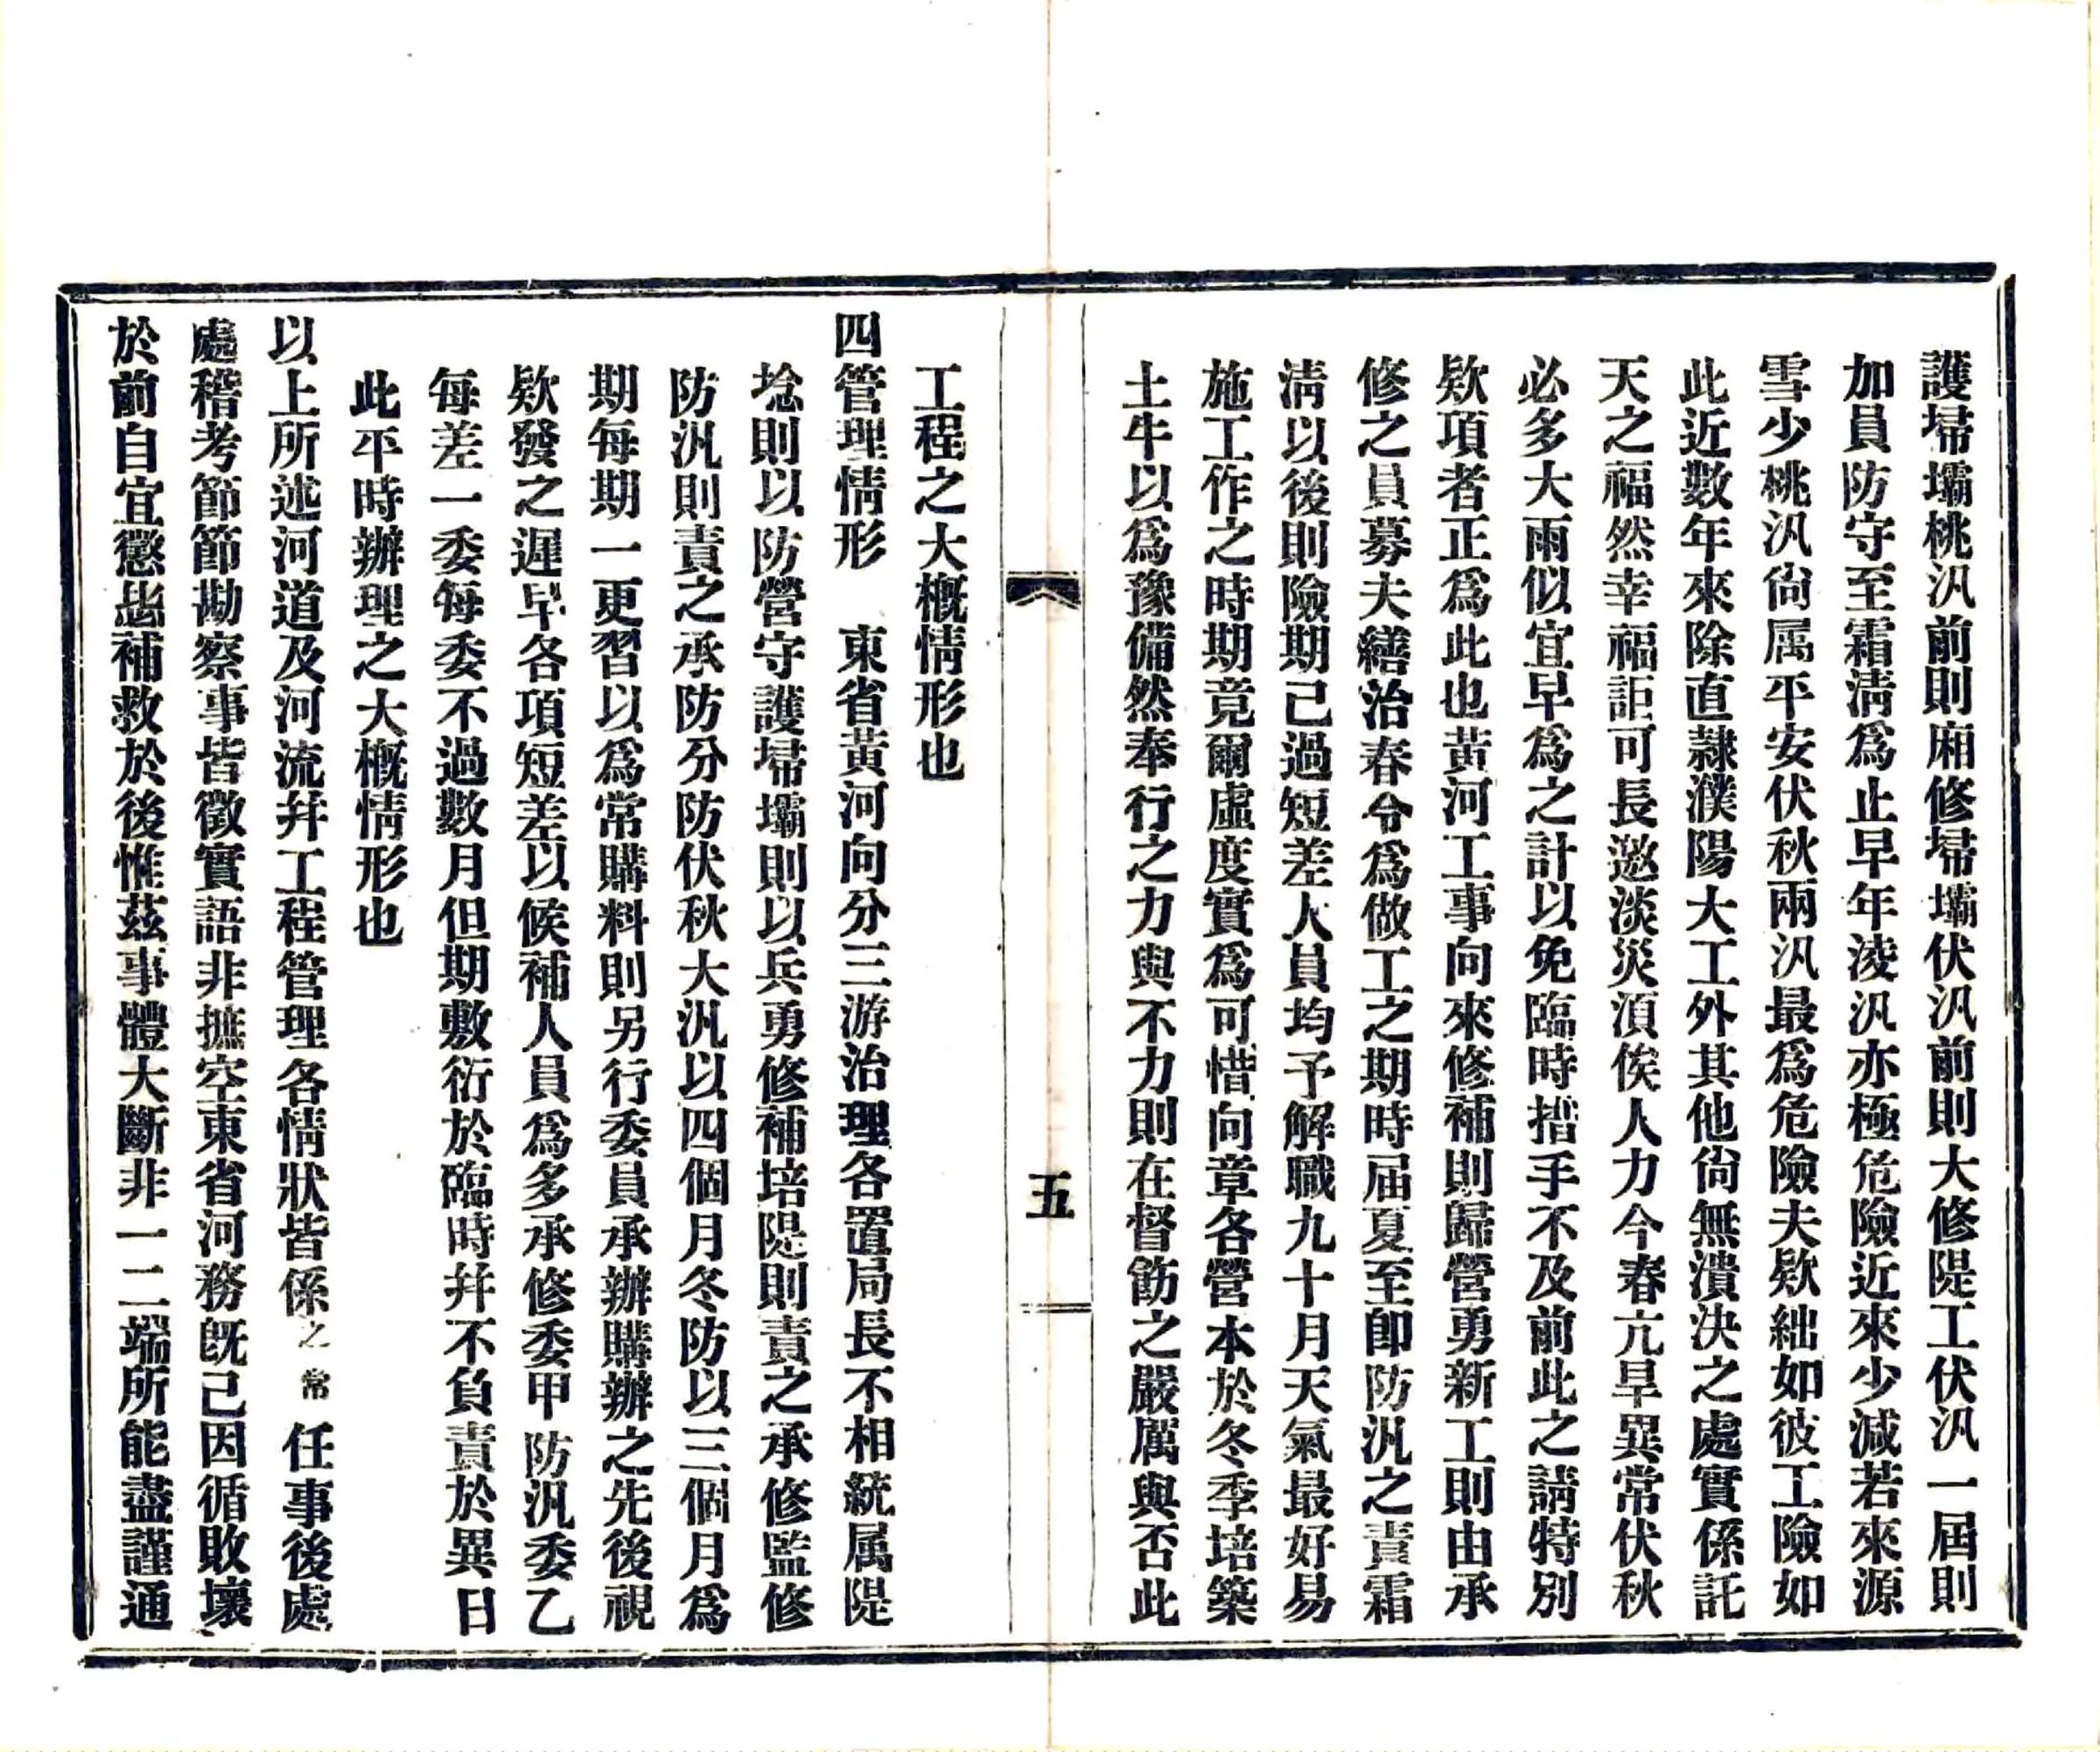 護埽壩桃汛前則廂修埽壩伏汛前則大修隄工伏汛一屆則
加員防守至霜清爲止早年淩汛亦極危險近來少減若來源
雪少桃汛尙属平安伏秋兩汛最爲危險夫欵絀如彼工險如
此近數年來除直隷濮陽大工外其他尙無潰決之處實係託
天之福然幸福詎可長邀淡災湏俟人力今春亢旱異常伏秋
必多大雨似宜早爲之計以免臨時措手不及前此之請特別
欵項者正爲此也黃河工事向來修補則歸營勇新工則由承
修之員募夫繕治春令爲做工之期時届夏至卽防汛之責霜
淸以後則險期己過短差人員均予解職九十月天氣最好易
施工作之時期竟爾虛度實爲可惜向章各營本於冬季培築
土牛以爲豫備然奉行之力與不力則在督飭之嚴厲與否此
五
工程之大槪情形也
四管理情形　東省黃河向分三游治理各置局長不相統属隄
埝則以防營守護埽壩則以兵勇修補培隄則責之承修監修
防汛則責之承防分防伏秋大汛以四個月冬防以三個月爲
期每期一更習以爲常購料則另行委員承辦購辦之先後視
欵發之遲早各項短差以候補人員爲多承修委甲防汛委乙
每差一委每委不過數月但期敷衍於臨時幷不負責於異日
此平時辦理之大槪情形也
以上所述河道及河流幷工程管理各情狀皆係之常任事後處
處稽考節節勘察事皆徵實語非摭空東省河務旣己因循敗壞
於前自宜懲毖補救於後惟茲事體大斷非一二端所能盡謹通